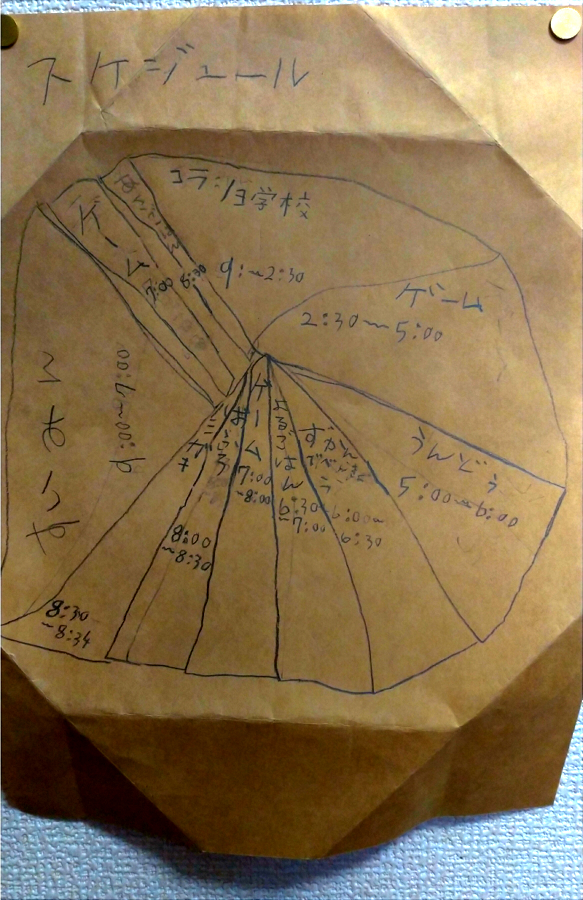 スケジュール
コラショ学校
9:~2:30
ゲーム
2:30~5:00
うんどう
5:00~6:00
ずかん
でべんきょ
う
6:00~
6:30
よるごはん
6:30
~7:00
ゲーム
7:00
~8:00
おふろ
8:00
~8:30
ハミガキ
8:30
~8:34
9:00~7:00
ゲーム
7:00
8:30